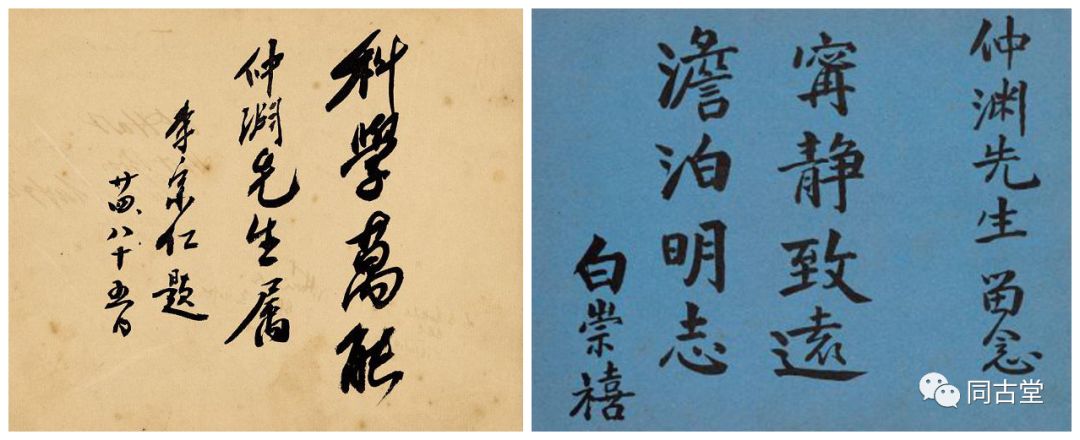 科學萬能
仲淵先生属
李宗仁題
廿四、八十五日
仲渊先生 留念
寧静致遠
澹泊明志
白崇禧
同古堂